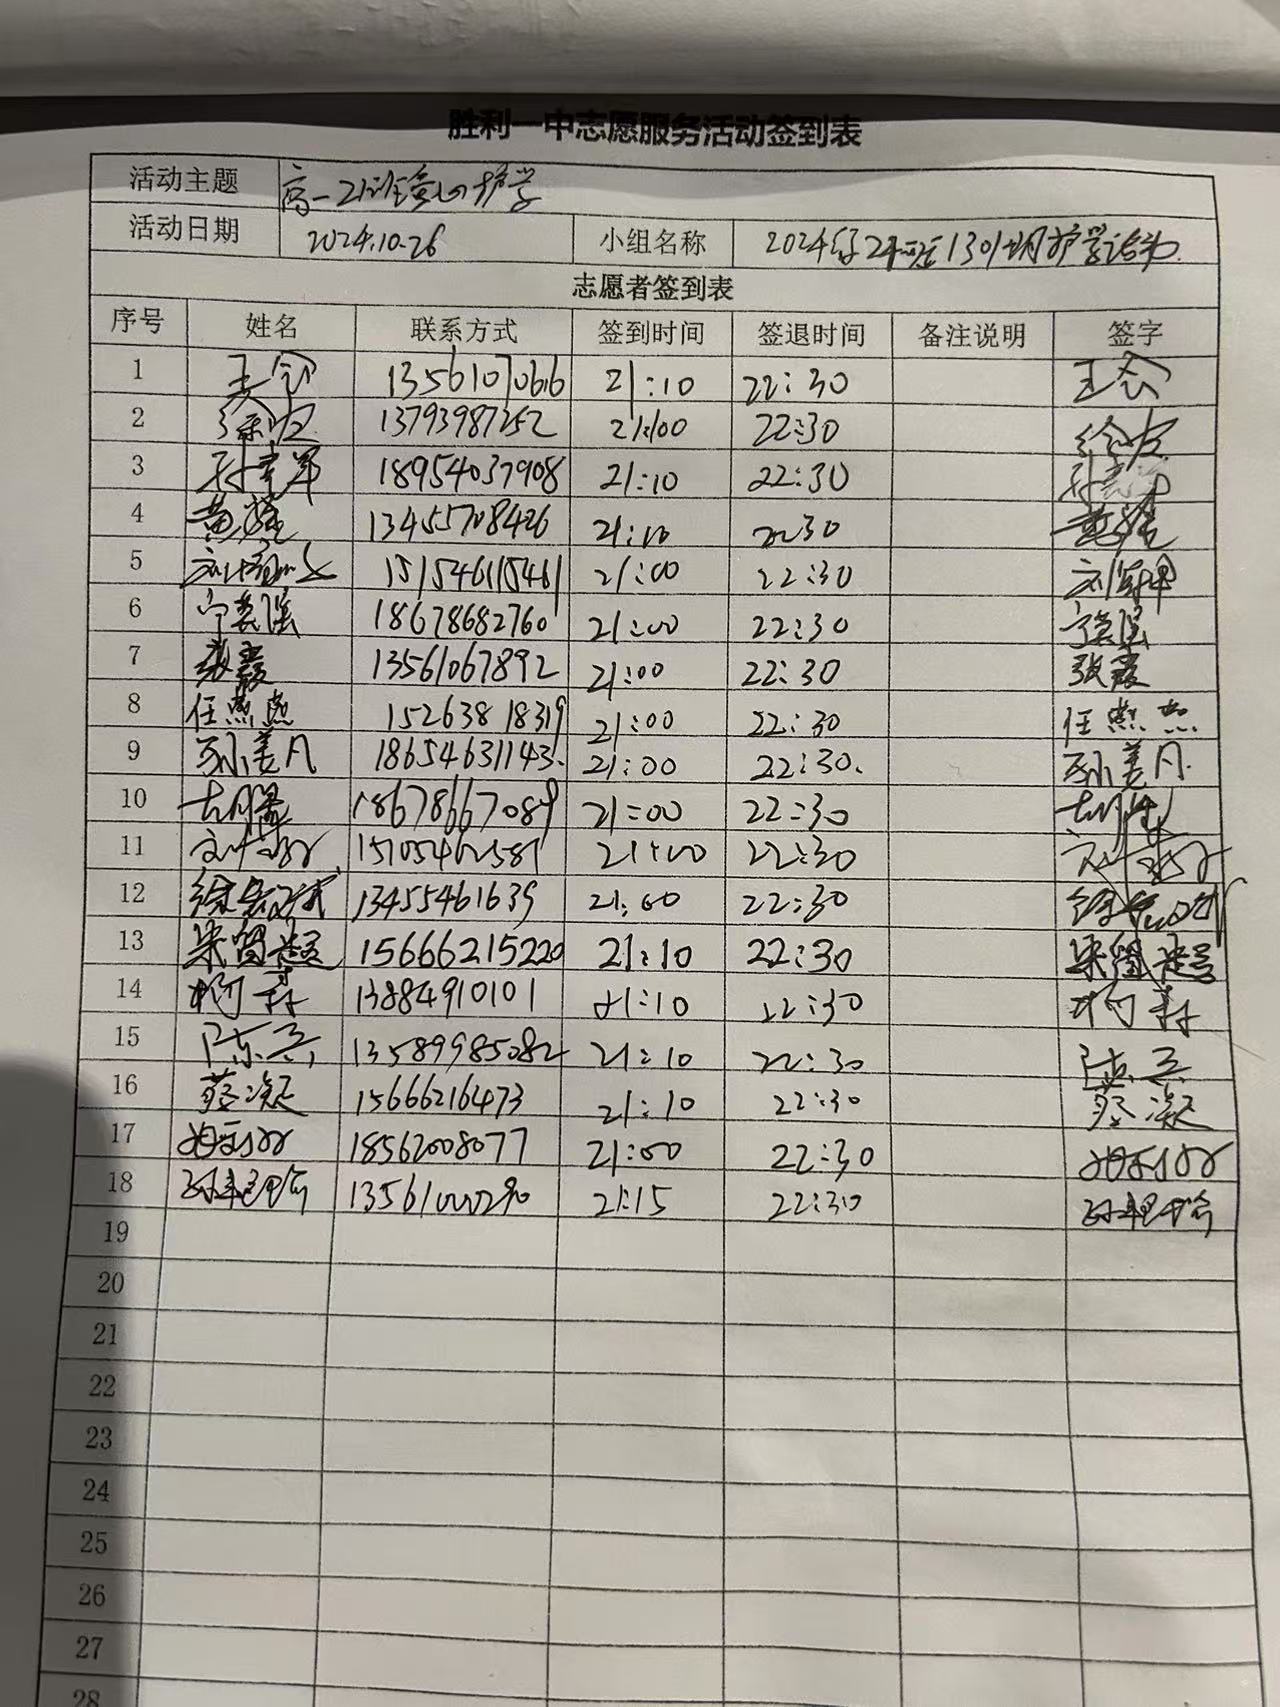 胜利一中志愿服务活动签到表
活动主题 高一21班 护学
活动日期 2024.10.26 小组名称 2024级21班 护学活动
志愿者签到表
序号 姓名 联系方式 签到时间 签退时间 备注说明 签字
1 王 13561070616 21:10 22:30 王
2 徐 13793987252 21:00 22:30 徐
3 孙 军 18954037908 21:10 22:30 孙
4 黄 13455708426 21:10 22:30 黄
5 刘 15154611546 21:00 22:30 刘
6 宁 瑶 18678682760 21:00 22:30 宁 瑶
7 张霞 13561067892 21:00 22:30 张霞
8 任燕燕 15263818319 21:00 22:30 任燕燕
9 孙美凡 18654631143. 21:00 22:30. 孙美凡.
10 胡 18678667089 21:00 22:30 胡
11 刘 21:00 22:30 刘
12 徐 13455461639 21:00 22:30 徐
13 宋留超 15666215220 21:10 22:30 宋留超
14 柯森 13884910101 21:10 22:30 柯森
15 陈兵 13589985082 21:10 22:30 陈兵
16 蔡凝 15666216473 21:10 22:30 蔡凝
17 18562008077 21:00 22:30
18 孙 13561000290 21:15 22:30 孙
19
20
21
22
23
24
25
26
27
28